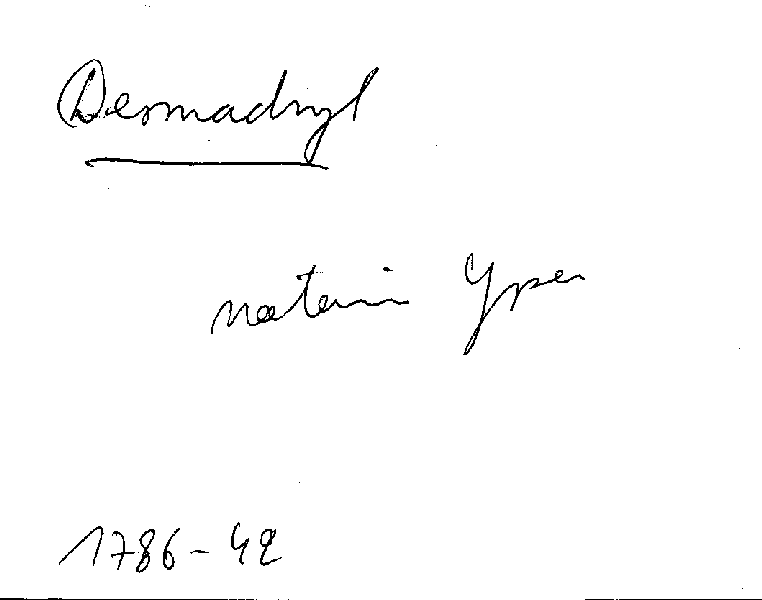 Desmadryl
notaris Yper
1786-42